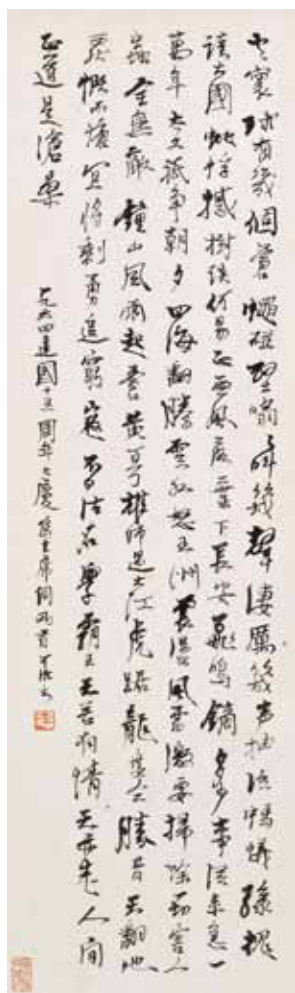 小小寰球有幾個蒼蠅碰壁嗡嗡叫幾聲淒厲幾聲抽泣螞蟻緣槐
誇大國蚍蜉撼樹談何易正西風落葉下長安飛鳴鏑多少事從來急一
萬年太久祇爭朝夕四海翻騰雲水怒五洲震盪風雷激要掃除一切害人
蟲全無敵鐘山風雨起蒼黃百萬雄師過大江虎踞龍盤今勝昔天翻地
覆慨而慷宜將剩勇追窮寇不可沽名學霸王天若有情天亦老人間
正道是滄桑
一九六四建國十五周年大慶 主席詞兩首